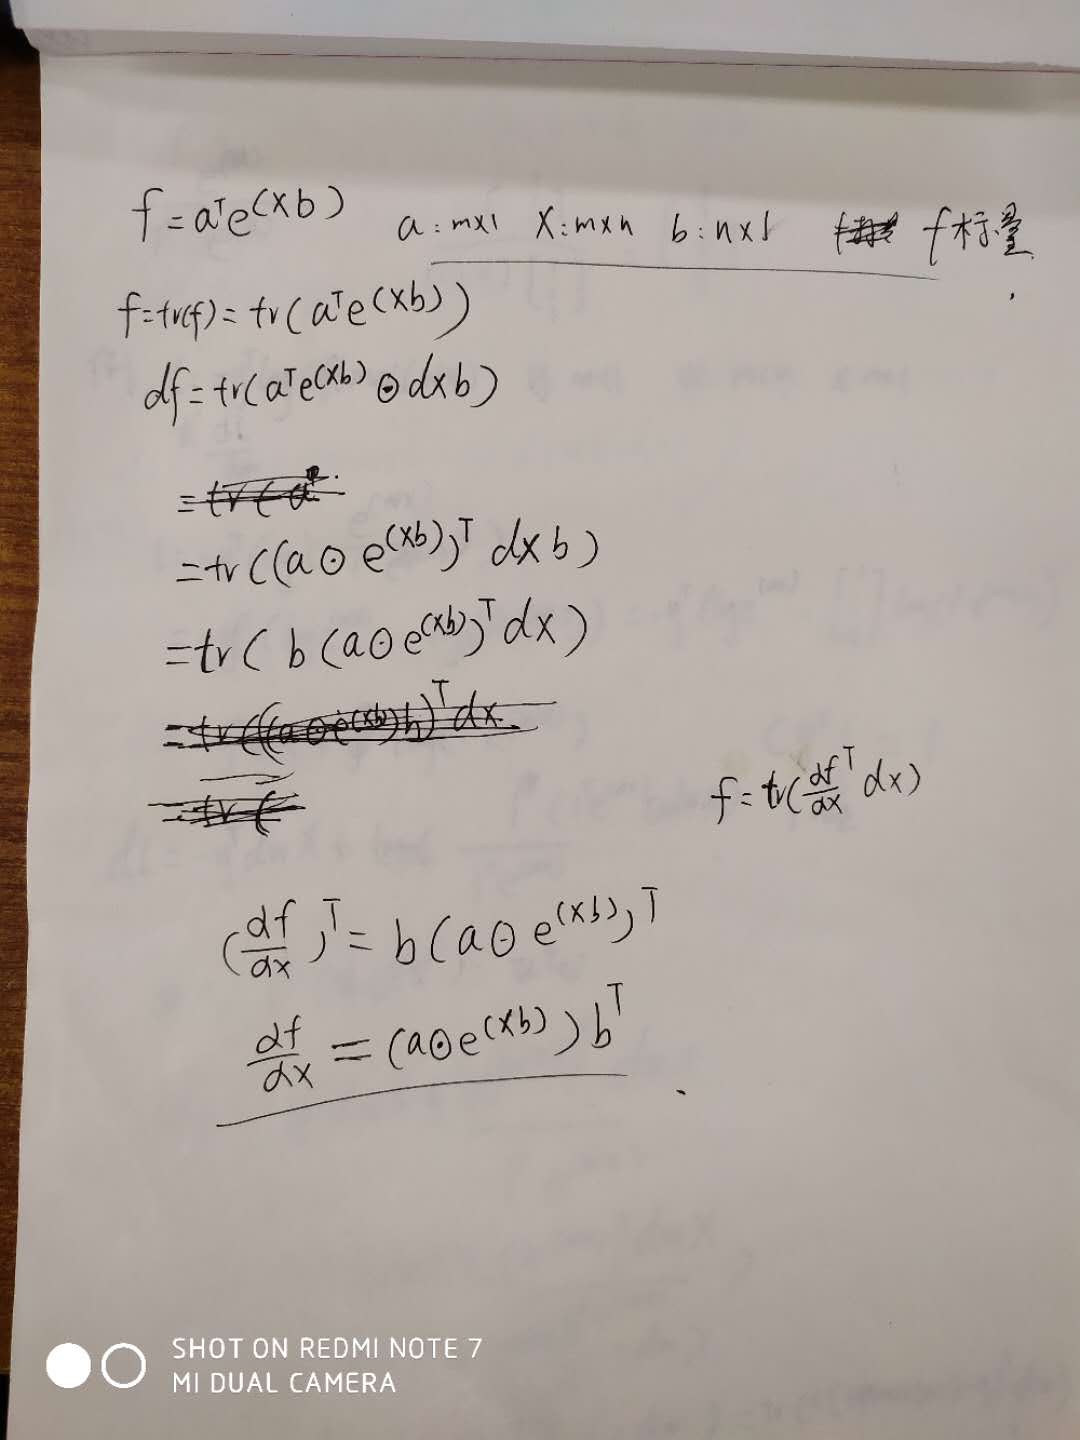 f=aᵀe^(Xb) a:m×1 X:m×n b:n×1 f标量.
f=tr(f)=tr(aᵀe^(Xb))
df=tr(aᵀe^(Xb)⊙dxb)
=tr(a
=tr((a⊙e^(Xb))ᵀdxb)
=tr(b(a⊙e^(Xb))ᵀdx)
=tr((a⊙e^(Xb)b)ᵀdx
=tr(
f=tr(df/dxᵀdx)
(df/dx)ᵀ=b(a⊙e^(Xb))ᵀ
df/dx=(a⊙e^(Xb))bᵀ.
SHOT ON REDMI NOTE 7
MI DUAL CAMERA